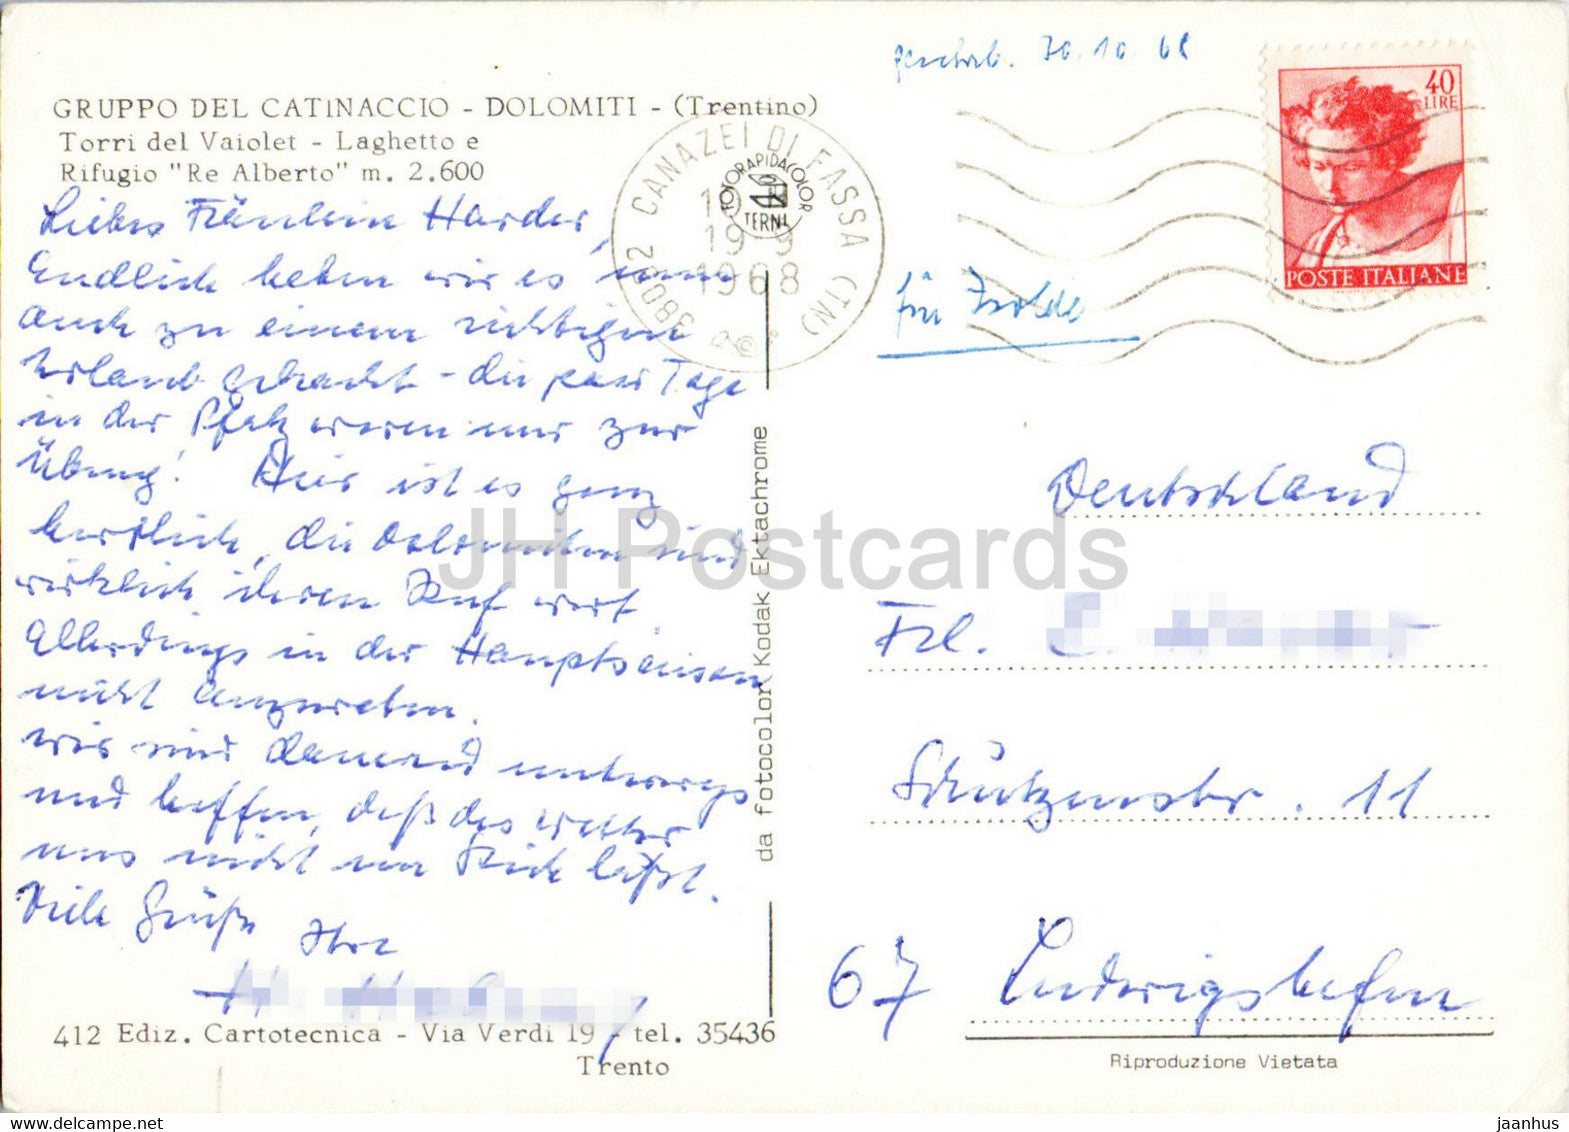 GRUPPO DEL CATINACCIO - DOLOMITI - (Trentino)
Torri del Vaiolet - Laghetto e
Rifugio "Re Alberto" m. 2.600
Liebes Fräulein Harder,
Endlich haben wir es nun
auch zu einem richtigen
Urlaub gebracht - die paar Tage
in der Pfalz waren nur zur
Übung! Hier ist es ganz
herrlich, die Dolomiten sind
wirklich ihren Ruf wert.
Allerdings in der Hauptsaison
nicht anzuraten.
Wir sind dauernd unterwegs
und hoffen, daß das Wetter
uns nicht im Stich läßt.
Viele Grüße Ihre
412 Ediz. Cartotecnica - Via Verdi 19 - tel. 35436
Trento
da fotocolor Kodak Ektachrome
FOTORAPIDACOLOR
TERNI
38032 CANAZEI DI FASSA (TN)
1968
geschrieb. 30.10.68
40
LIRE
POSTE ITALIANE
für Isolde
Deutschland
Frl.
Schützenstr. 11
67 Ludwigshafen
Riproduzione Vietata
JH Postcards
jaanhus © www.delcampe.net